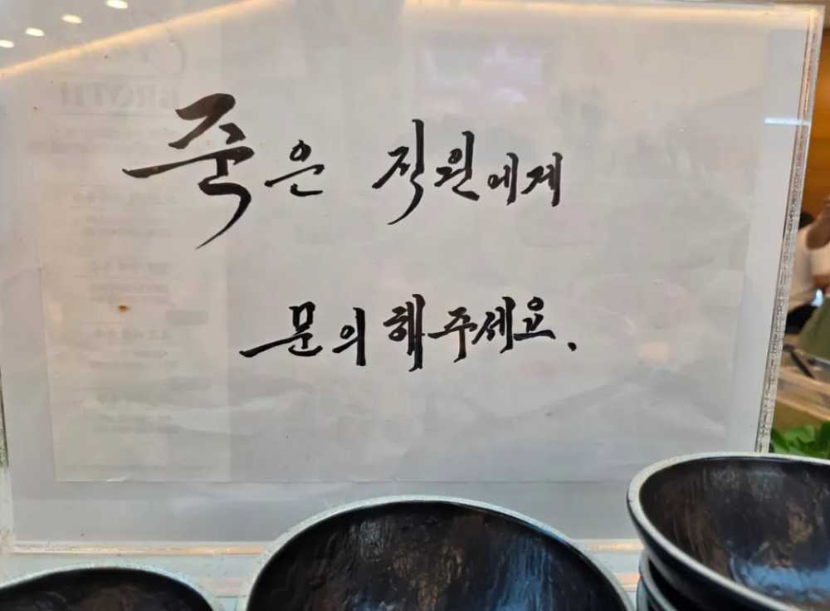 죽은 직원에게
문의해주세요.